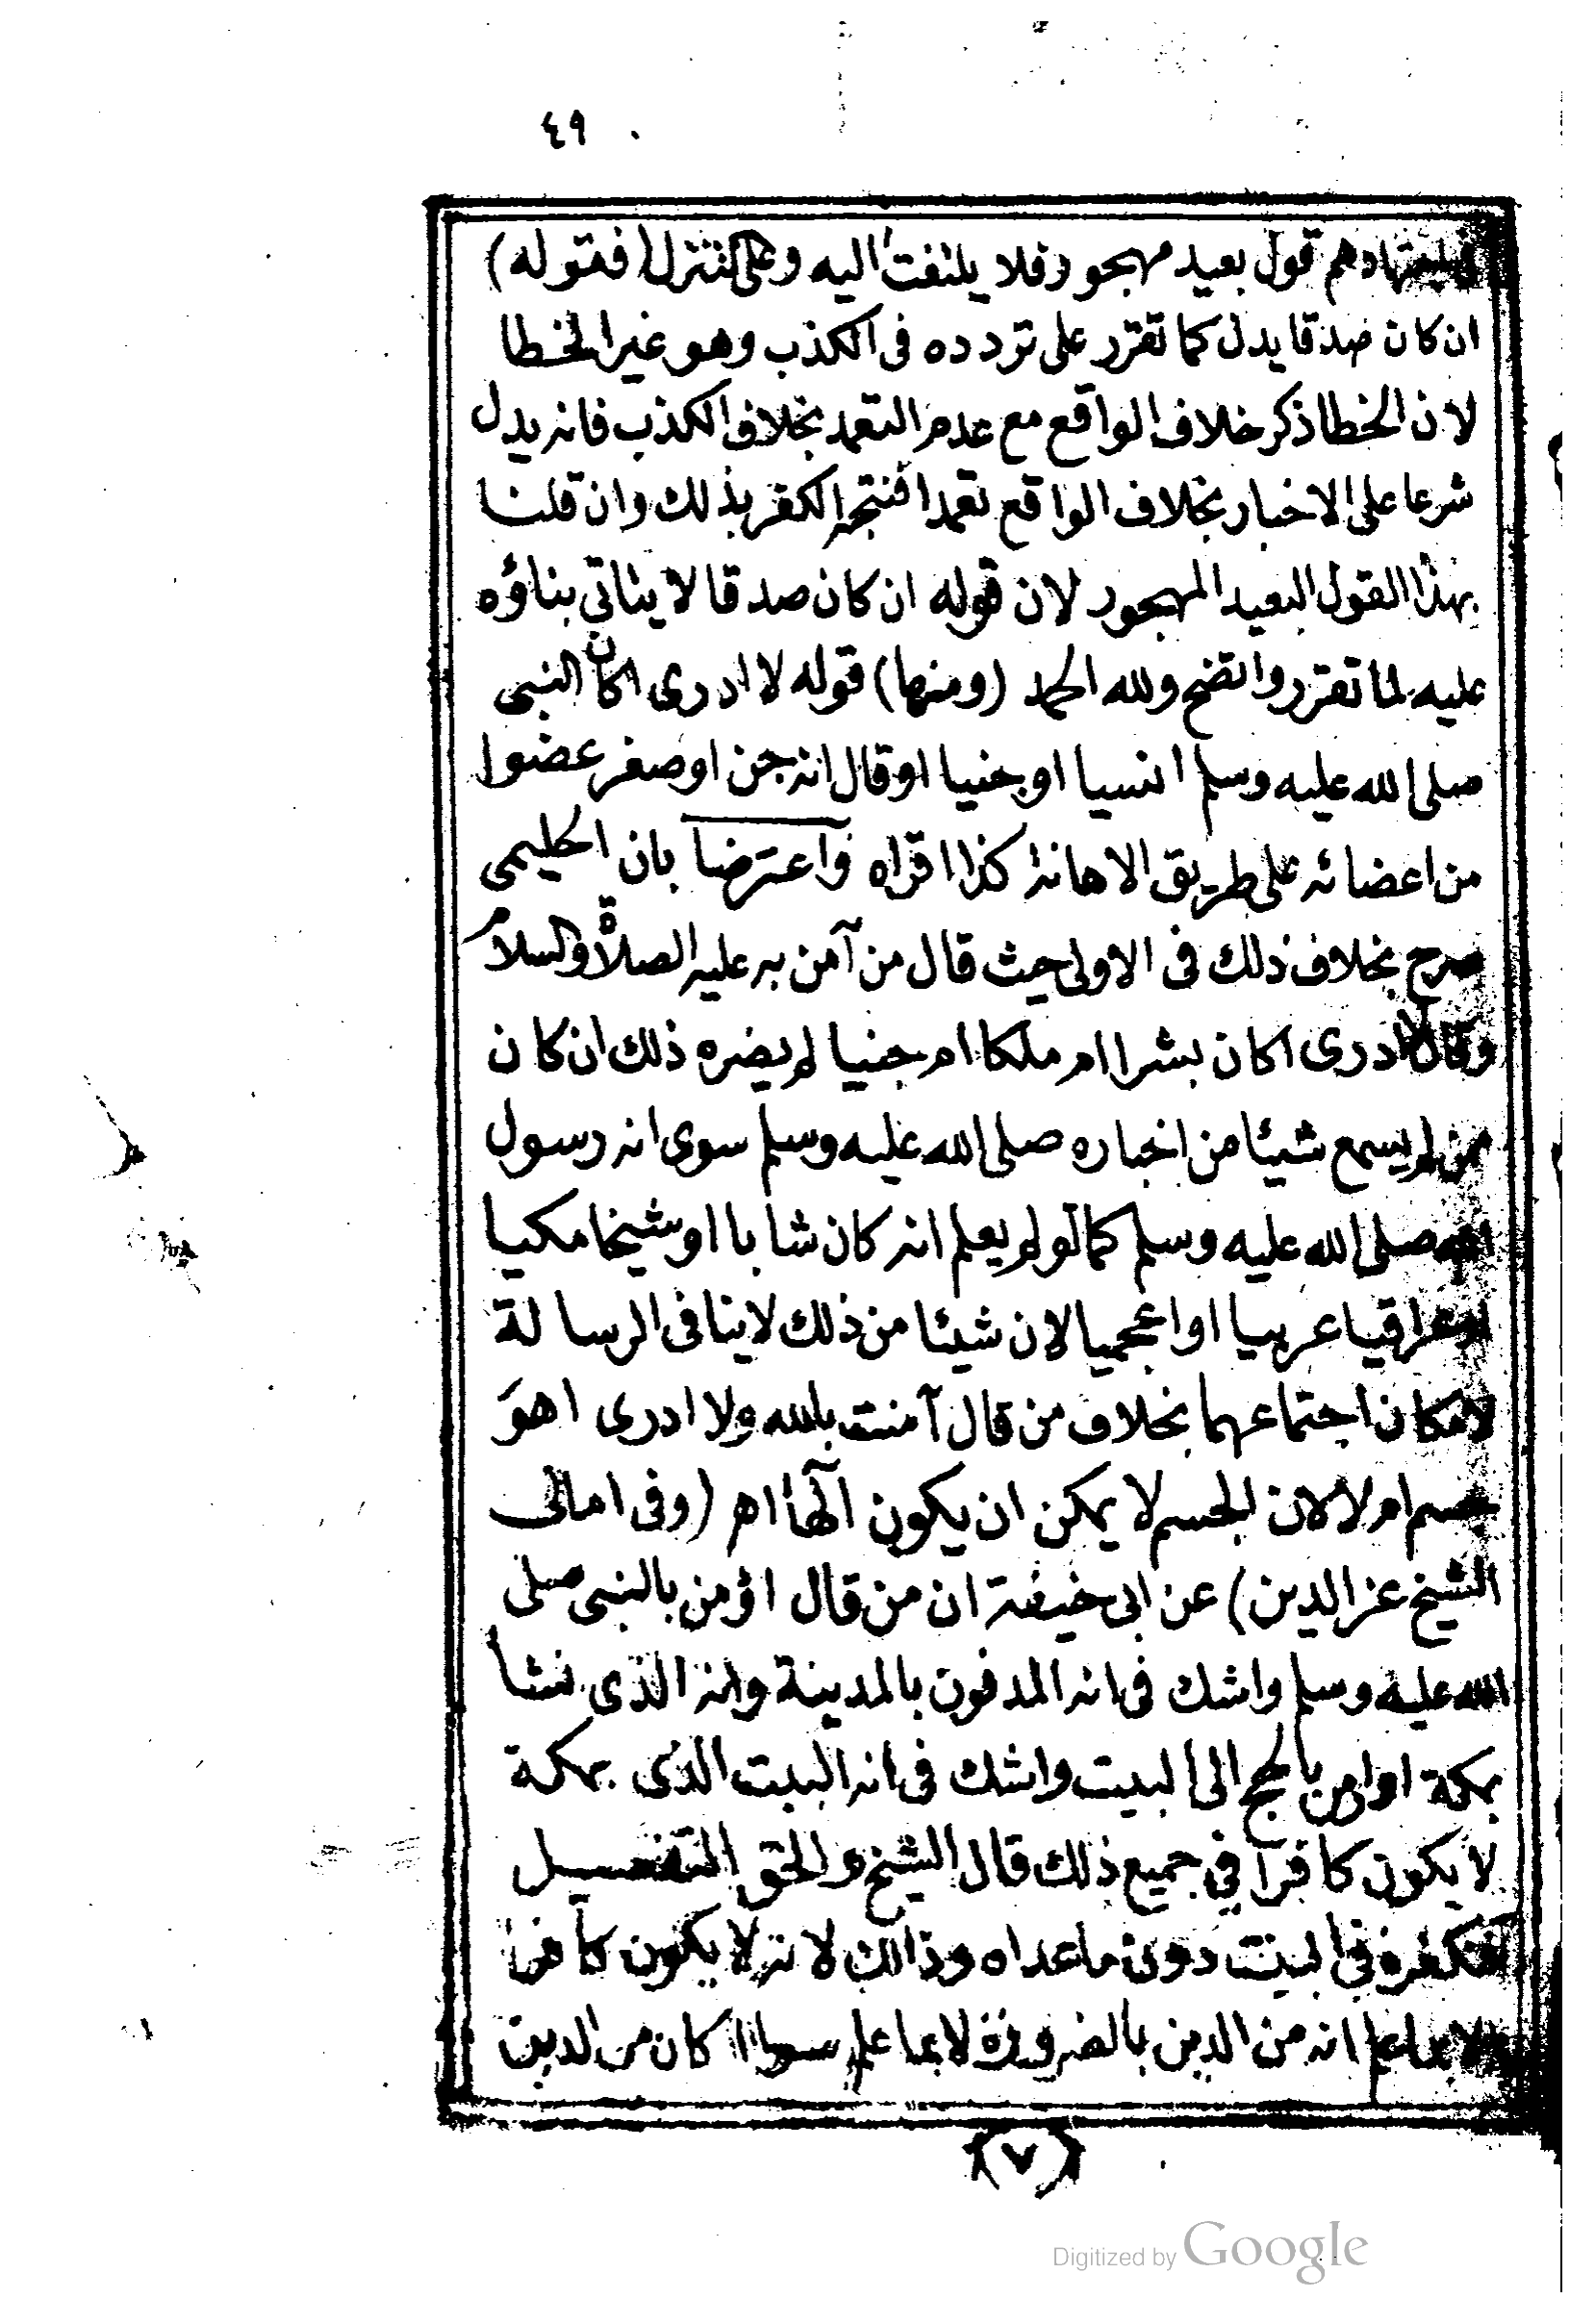 ٤٩
قول بعيد مهجور فلا يلتفت اليه وعلى التنزل (فقوله)
ان كان صدقا يدل كما تقرر على تردده فى الكذب وهو غير الخطا
لان الخطا ذكر خلاف الواقع مع عدم التعمد بخلاف الكذب فانه يدل
شرعا على الاخبار بخلاف الواقع تعمدا فنتجه الكفر بذلك وان قلنا
بهذا القول البعيد المهجور لان قوله ان كان صدقا لا يتاتى بناؤه
عليه لما تقرر واتضح ولله الحمد (ومنها) قوله لا ادرى اكان النبى
صلى الله عليه وسلم انسيا او جنيا او قال انه جن او صغر عضوا
من اعضائه على طريق الاهانة كذا اقراه واعترضا بان الحليمى
صرح بخلاف ذلك فى الاولى حيث قال من آمن به عليه الصلاة والسلام
وقال لا ادرى اكان بشرا ام ملكا ام جنيا لم يضره ذلك ان كان
ممن لم يسمع شيئا من اخباره صلى الله عليه وسلم سوى انه رسول
الله صلى الله عليه وسلم كما لو لم يعلم انه كان شابا او شيخا مكيا
او عراقيا عربيا او اعجميا لان شيئا من ذلك لا ينافى الرسالة
لامكان اجتماعهما بخلاف من قال آمنت بالله ولا ادرى اهو
جسم ام لا لان الجسم لا يمكن ان يكون آلهاً اهـ (وفى امالى
الشيخ عز الدين) عن ابى حنيفة ان من قال اؤمن بالنبى صلى
الله عليه وسلم واشك فى انه المدفون بالمدينة وانه الذى نشأ
بمكة او اومن بالحج الى البيت واشك فى انه البيت الذى بمكة
لا يكون كافرا في جميع ذلك قال الشيخ والحق التفصيل
فنكفره في البيت دون ما عداه وذالك لانه لا يكون كافرا
الا بما علم انه من الدين بالضرورة لا بما علم سواا كان من الدين
(٧)
Digitized by Google